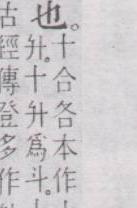 也。
十合各本作
升。十升爲斗。
古經傳登多作